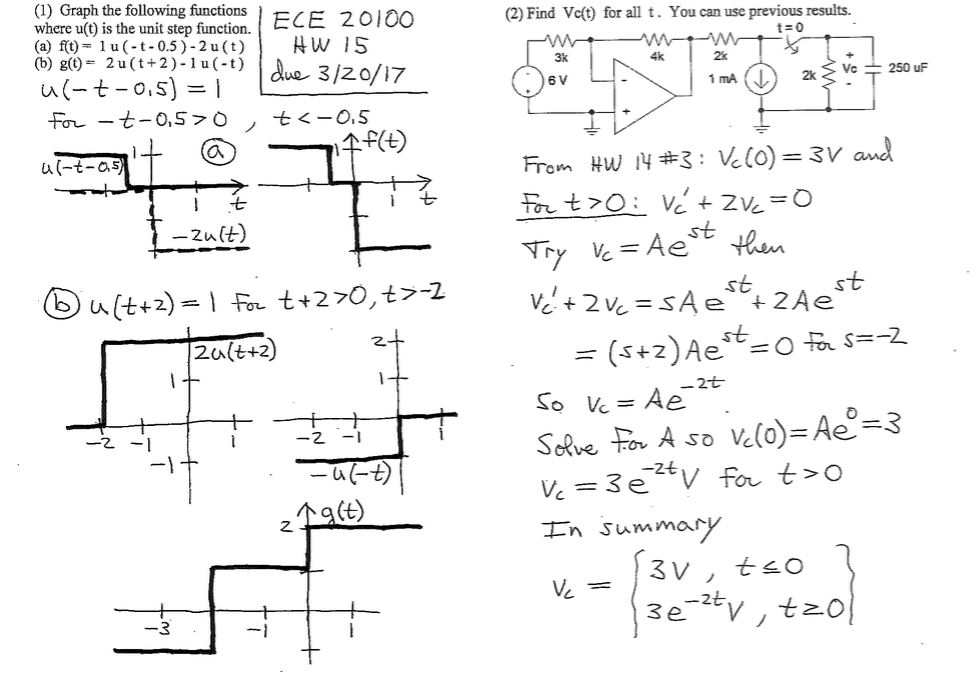 (1) Graph the following functions
where u(t) is the unit step function.
(a) f(t) = 1 u ( - t - 0.5 ) - 2 u ( t )
(b) g(t) = 2 u ( t + 2 ) - 1 u ( - t )
ECE 20100
HW 15
due 3/20/17
u(-t-0.5) = 1
For -t-0.5>0 , t<-0.5
(a)
1
u(-t-0.5)
1
t
-2u(t)
1
f(t)
1
t
(b) u(t+2) = 1 For t+2>0, t>-2
2u(t+2)
1
-2
-1
1
-1
2
1
-2
-1
1
-u(-t)
g(t)
2
-3
-1
1
(2) Find Vc(t) for all t. You can use previous results.
t=0
3k
4k
2k
6 V
1 mA
2k
+
Vc
-
250 uF
-
+
From HW 14 #3: Vc(0) = 3V and
For t>0: Vc' + 2Vc = 0
Try Vc = Ae^st then
Vc' + 2Vc = sAe^st + 2Ae^st
= (s+2)Ae^st = 0 for s=-2
So Vc = Ae^-2t
Solve For A so Vc(0) = Ae^0 = 3
Vc = 3e^-2t V for t>0
In summary
Vc = { 3V , t≤0
3e^-2t V , t≥0 }